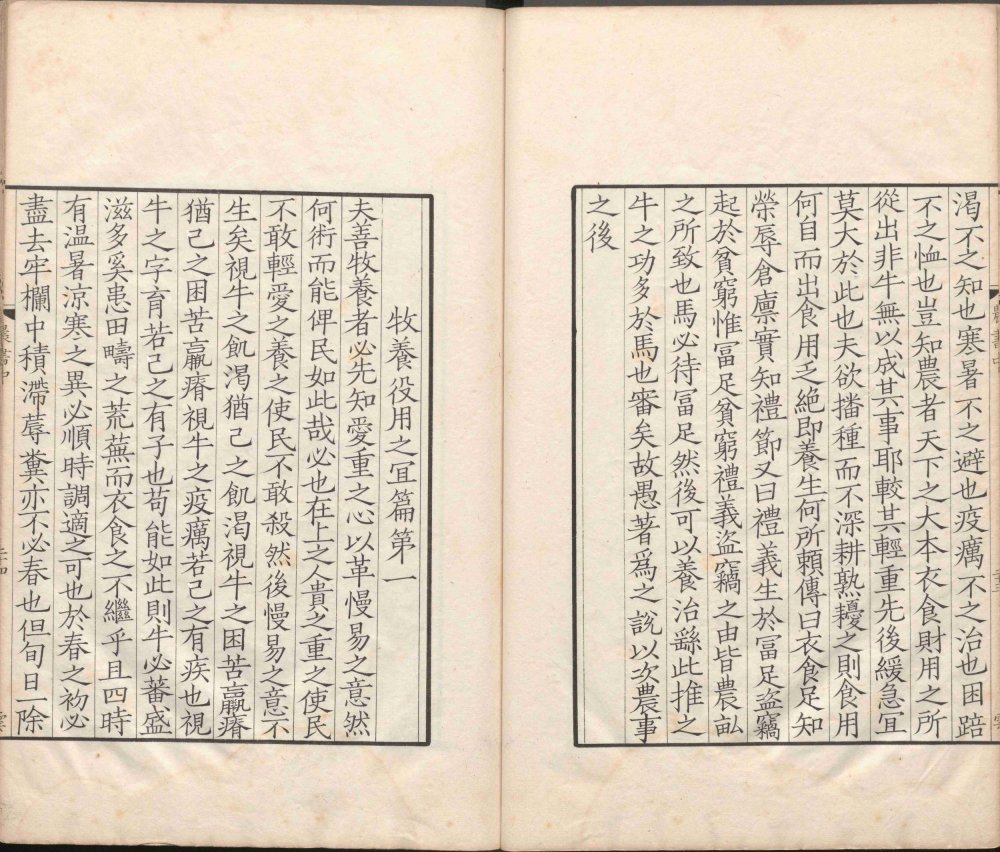 渴不之知也寒暑不之避也疫癘不之治也困踣
不之恤也豈知農者天下之大本衣食財用之所
從出非牛無以成其事耶較其輕重先後緩急宜
莫大於此也夫欲播種而不深耕熟耰之則食用
何自而出食用乏絶即養生何所賴傳曰衣食足知
榮辱倉廪實知禮節又曰禮義生於冨足盜竊
起於貧窮惟冨足貧窮禮義盜竊之由皆農畝
之所致也馬必待冨足然後可以養治繇此推之
牛之功多於馬也審矣故愚著爲之説以次農事
之後
牧養役用之宜篇第一
夫善牧養者必先知愛重之心以革慢易之意然
何術而能俾民如此哉必也在上之人貴之重之使民
不敢輕愛之養之使民不敢殺然後慢易之意不
生矣視牛之飢渴猶己之飢渴視牛之困苦羸瘠
猶己之困苦羸瘠視牛之疫癘若己之有疾也視
牛之字育若己之有子也苟能如此則牛必蕃盛
滋多奚患田疇之荒蕪而衣食之不繼乎且四時
有温暑凉寒之異必順時調適之可也於春之初必
盡去牢欄中積滯蓐糞亦不必春也但旬日一除
農書中